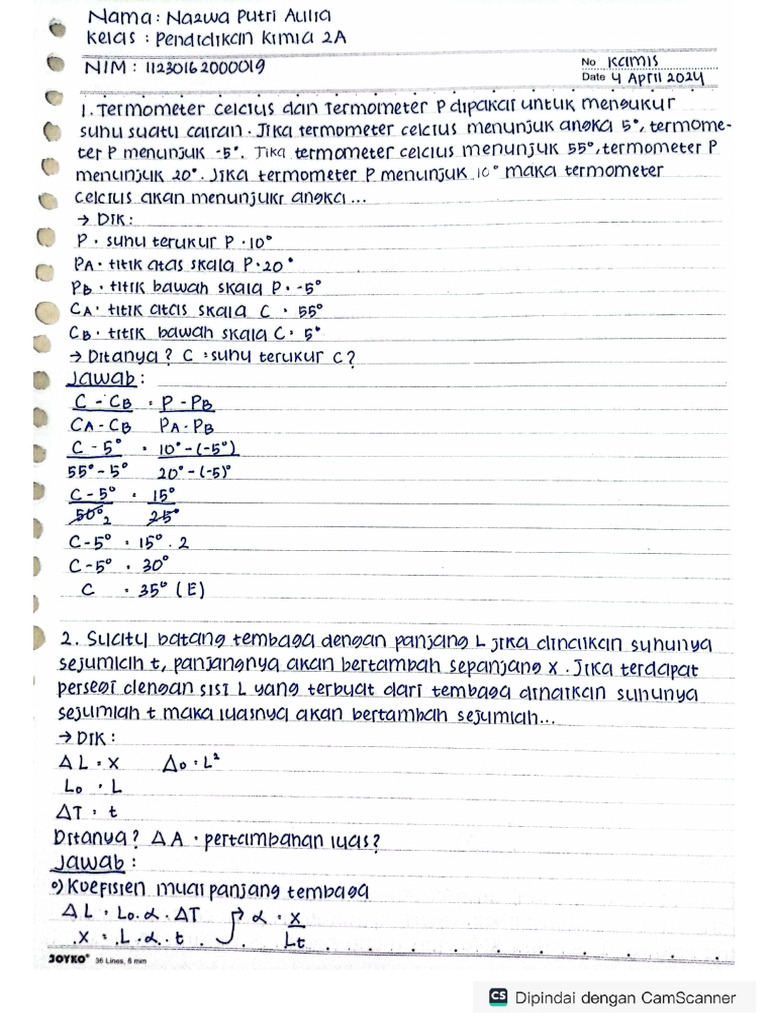 Nama : Nazwa Putri Aulia
Kelas : Pendidikan Kimia 2A
NIM : 11230162000019
No Kamis
Date 4 April 2024
1. Termometer celcius dan Termometer P dipakai untuk mengukur
suhu suatu cairan. Jika termometer celcius menunjuk angka 5°, termome-
ter P menunjuk -5°. Jika termometer celcius menunjuk 55°, termometer P
menunjuk 20°. Jika termometer P menunjuk 10° maka termometer
celcius akan menunjukr angka ...
→ DIK :
P = suhu terukur P = 10°
PA = titik atas skala P = 20°
PB = titik bawah skala P = -5°
CA = titik atas skala C = 55°
CB = titik bawah skala C = 5°
→ Ditanya ? C = suhu terukur C ?
Jawab :
C - CB = P - PB
CA - CB PA - PB
C - 5° = 10° - (-5°)
55° - 5° 20° - (-5)°
C - 5° = 15°
50° 2 25°
C - 5° = 15° . 2
C - 5° = 30°
C = 35° (E)
2. Suatu batang tembaga dengan panjang L jika dinaikan suhunya
sejumlah t, panjangnya akan bertambah sepanjang x . Jika terdapat
persegi dengan sisi L yang terbuat dari tembaga dinaikan suhunya
sejumlah t maka luasnya akan bertambah sejumlah...
→ DIK :
ΔL = x Δo = L²
Lo = L
ΔT = t
Ditanya ? ΔA = pertambahan luas ?
Jawab :
o) Koefisien muai panjang tembaga
ΔL = Lo . α . ΔT α = x
x = L . α . t Lt
JOYKO® 36 Lines, 6 mm
CS Dipindai dengan CamScanner